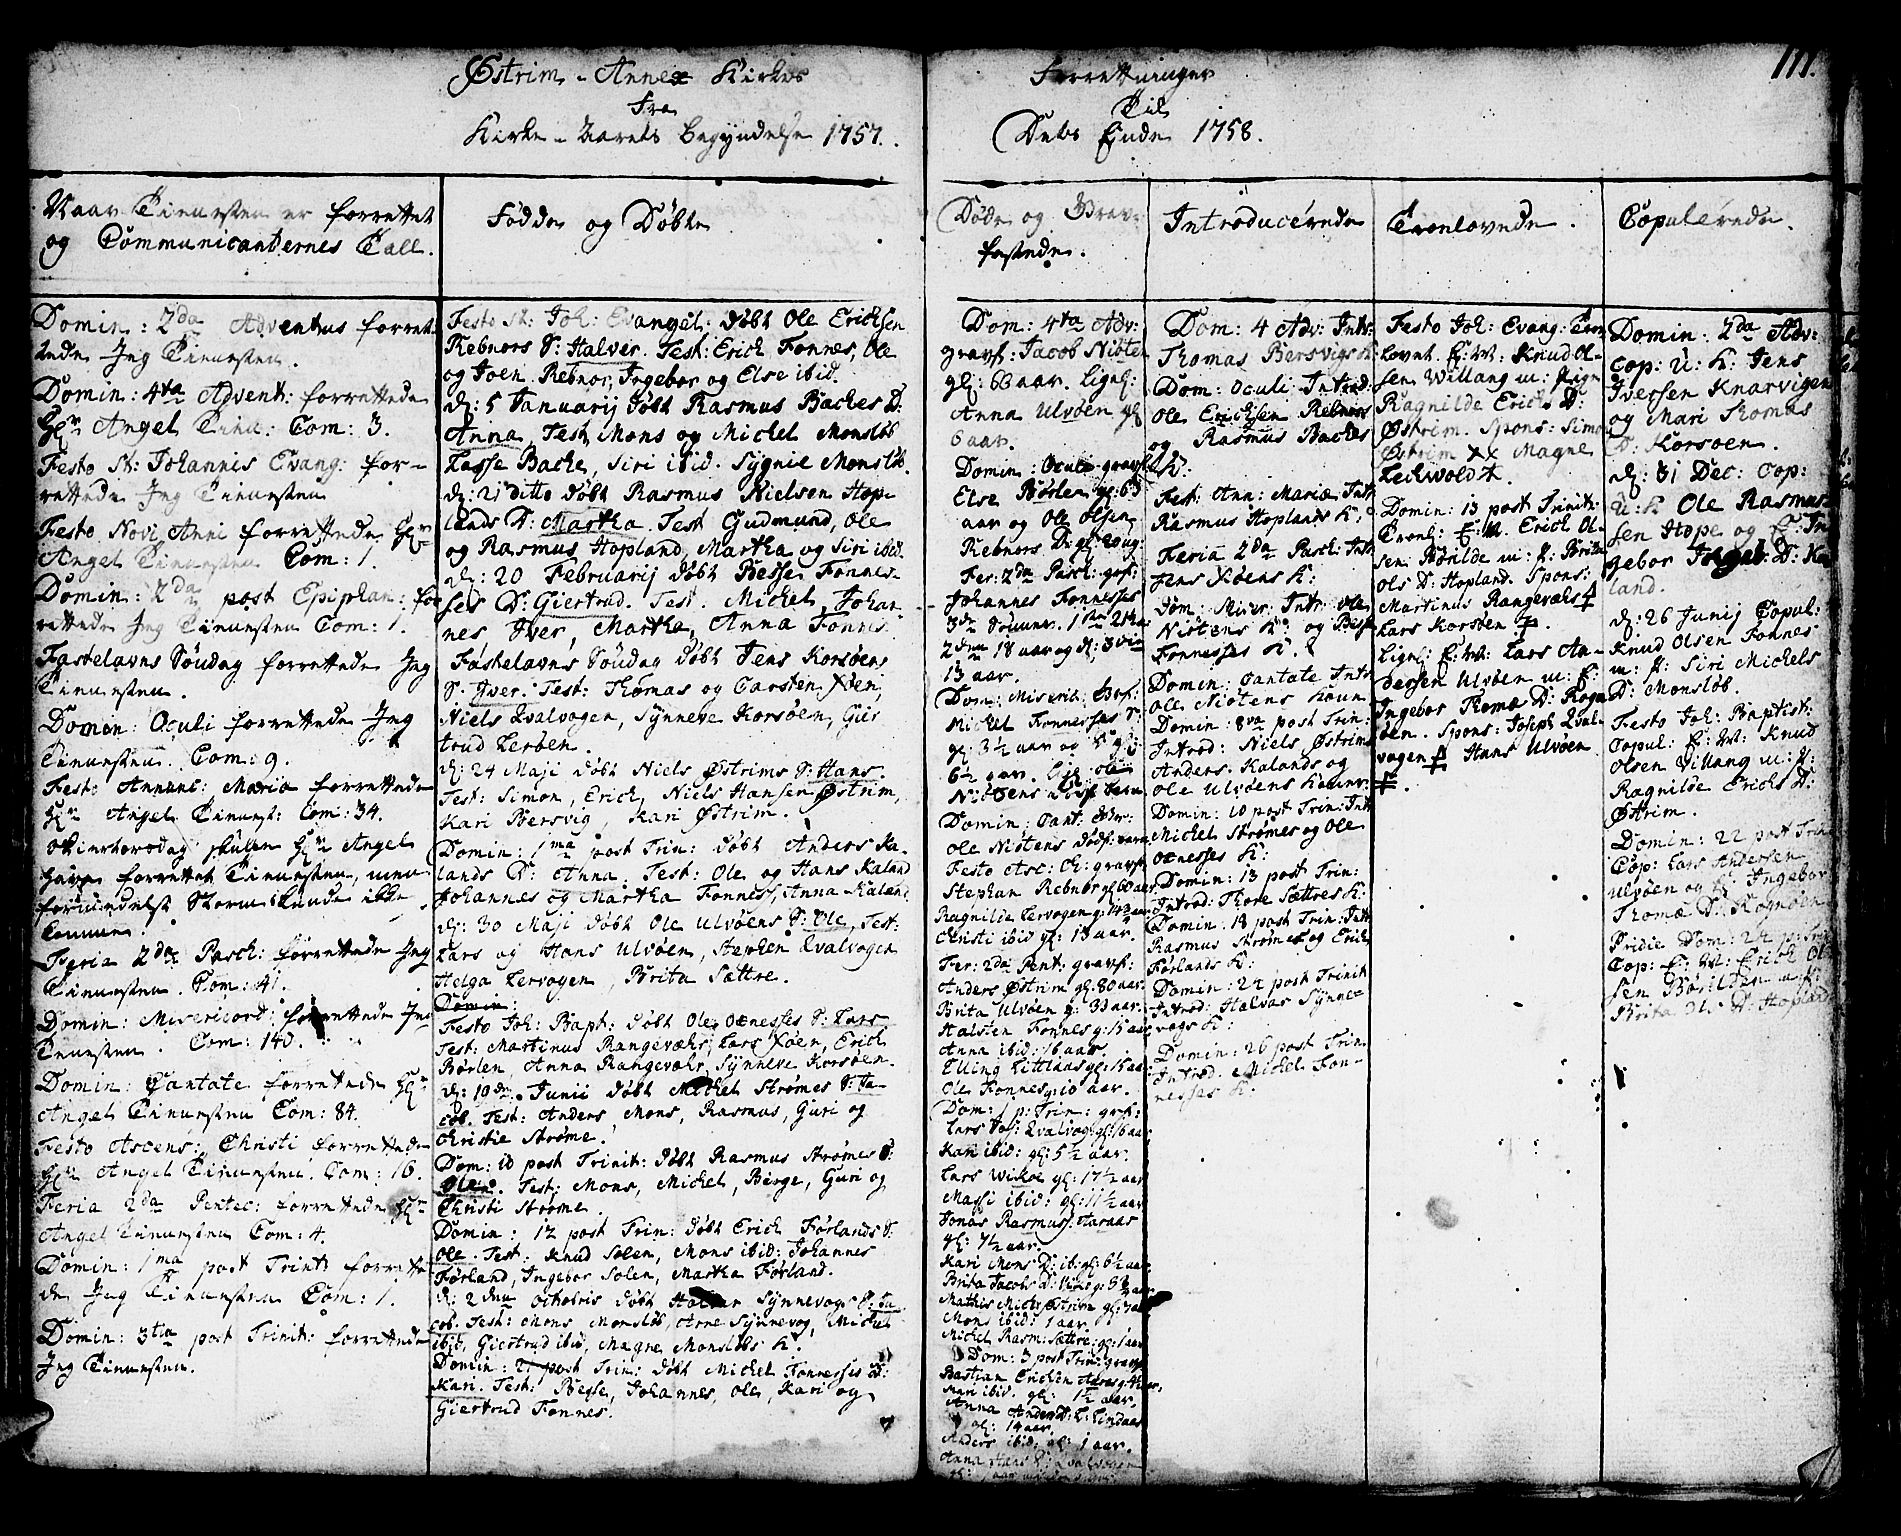 111.
Østrim Annex Kirkes Forretninger
Fra Til
Kirke-Aarets Begyndelse 1757. Dets Ende 1758.
Naar Tienesten er forrettet
og Communicanternes Tall.
Domin: 2da Adventus forret-
tede Jeg Tienesten.
Domin: 4ta Advent: forrettede
Hr Angel Tien: Com: 3.
Festo St: Johannis Evang: for-
rettede Jeg Tienesten
Festo Novi Anni forrettede Hr
Angel Tienesten Com: 1.
Domin: 2da post Epiphan: for
rettede Jeg Tienesten Com: 1.
Fastelavns Søndag forrettede Jeg
Tienesten.
Domin: Oculi forrettede Jeg
Tienesten. Com: 9.
Festo Annunc: Maria forrettede
Hr Angel Tienest: Com: 34.
Skiertorsdag skulde Hr Angel
have forrettet Tienesten, men
formedelst Storm kunde ikke
komme.
Feria 2da Pasch: forrettede Jeg
Tienesten. Com: 41.
Domin: Misericord: forrettede Jeg
Tienesten. Com: 140.
Domin: Cantate forrettede Hr
Angel Tienesten Com: 84.
Festo Ascens: Christi forrettede
Hr Angel Tienesten. Com: 16.
Feria 2da Pentec: forrettede Hr
Angel Tienesten Com: 4.
Domin: 1ma post Trinit: forrette
de Jeg Tienesten Com: 1.
Domin: 3tia post Trinit: forrettede
Jeg Tienesten.
Fødde og Døbte
Festo St: Joh: Evangel: døbt Ole Erichsen
Rebnors S: Halver. Test: Erich Fonnes, Ole
og Joen Rebnor, Ingebor og Else ibid.
d: 5 Januarij døbt Rasmus Baches D:
Anna, Test, Mons og Michel Monsløb
Lasse Bache, Siri ibid. Sygnie Monsløb.
d: 21 ditto døbt Rasmus Nielsen Hop-
lands D: Martha. Test Gudmund, Ole
og Rasmus Hopland, Martha og Siri ibid.
d: 20 Februarij døbt Besse Fonnes-
ses D: Giertrud. Test. Michel, Johan-
nes Iver, Martha, Anna Fonnes.
Fastelavns Søndag døbt Jens Korsøens
S. Iver. Test: Thomas og Carsten Xøen,
Niels Qvalvogen, Synneve Korsøen, Gier
trud Lerøen.
d: 24 Maji døbt Niels Østrims S: Hans.
Test: Simon, Erich, Niels Hansen Østrim,
Kari Bersvig, Kari Østrim.
Domin: 1ma post Trin: døbt Anders Ka-
lands D: Anna. Test: Ole og Hans Kaland
Johannes og Martha Fonness, Anna Kaland
d: 30 Maji døbt Ole Ulvøens S: Ole, Test:
Lars og Hans Ulvøen, Stephen Qvalvogen
Helga Lervogen, Brita Sættre.
Domin:
Festo Joh: Bapt: døbt Ole Oxnesses S: Lars
Test: Martinus Rangevæhr, Lars Xøen, Erich
Børlen, Anna Rangevæhr, Synneve Korsøen.
d: 19de Junii døbt Michel Strømes S: Ja-
cob. Test: Anders, Mons, Rasmus, Guri og
Christie Strøme.
Dom: 10 post Trinit: døbt Rasmus Strømes S:
Ole. Test: Mons, Michel, Børge, Guri og
Christi Strøme.
Domin: 12 post Trin: døbt Erich Førlands S:
Ole. Test: Knud Solen, Mons ibid: Johannes
Førland, Ingebor Solen, Martha Førland.
d: 2den Octobris døbt Halvar Synnevogs S: Ja
cob. Test: Mons Monsløb, Arne Synnevog, Michel
ibid, Giertrud ibid, Magne Monsløbs K:
Domin: 21 post Trin: døbt Michel Fonnesses D:
Kari. Test: Besse, Johannes, Ole, Kari og
Giertrud Fonnes.
Døde og Grav-
festede.
Dom: 4ta Adv:
gravf: Jacob Nibten
gl: 63 aar. Ligel:
Anna Ulvøen gl
6 aar.
Domin: Oculi gravf:
Else Børlen gl: 63
aar og Ole Olsen
Rebnors D: gl: 20 ug:
Fer: 2da Pasch: grf:
Johannes Fonnesses
3de Sønner. 1ste 21 aar
2den 18 aar og d: 3die
13 aar.
Dom: Miserik: Grf:
Michel Fonnesses S:
gl: 3½ aar og
6½ aar.
Domin: Cant: Grv:
Ole Nistens dødf: barn
Festo Asc: Ch: gravf:
Stephan Rebnor gl: 60 aar.
Ragnilde Lervogen g: 14¾ aar
Christi ibid gl: 13 aar.
Fer: 2da Pent: gravf:
Anders Østrim gl: 80 aar.
Brita Ulvøen g: 33 aar.
Halsten Fonnes g: 1½ aar
Anna ibid: 16 aar.
Elling Littlaas gl: ½ aar
Ole Fonnes g: 10 aar.
Dom: 1 p: Trin: grf:
Lars Qvalvog: gl: 16 aar
Kari ibid: gl: 5½ aar.
Lars Wikøe gl: 17½ aar
Massi ibid: gl: 11½ aar
Jonas Rasmus: Aaraas
gl: 7½ aar.
Kari Mons D: ib: gl: 6½ aar.
Brita Jacobs D:
Mathis Østrim gl: 7 aar
Mons ibid: 1 aar.
Michel Rasm: Sættre: gl: 1 aar
Dom: 3 post Trin: gravf
Bastian Erichsen Aaraas
Mari ibid. gl: 1½ aar.
Anna Anders D: Lindaas
gl: 14 aar.
Anders ibid, gl: 1 aar.
Anna Hans Qvalvogen
Introducerede
Dom: 4 Adv: Intr:
Thomas Bersvigs K:
Dom: Oculi Introd:
Ole Erichsen Rebnors
og Rasmus Baches
K:
Fest: Ann: Mariæ Intr
Rasmus Hoplands K:
Feria 2da Pasch: Intr
Jens Xøens K:
Dom: Miser: Intr: Ole
Nistens K: og Besse
Fonnesses K:
Domin: Cantate Intr
Ole Nistens Koun
Domin: 8va post Trin:
Introd: Niels Østrims
Anders Kalands og
Ole Ulvøens Koner:
Domin: 10 post Trin: Intr
Michel Strømes og Ole
Oxnesses K:
Domin: 13 post Trin:
Introd: Thore Sættres K:
Domin: 18 post Trin: Intr
Rasmus Strømes og Erich
Førlands K:
Domin: 22 post Trinit
Introd: Halvar Synne-
vogs K:
Domin: 26 post Trin
Introd. Michel Fon-
nesses K:
Troelovede.
Festo Joh: Evang: Troe
lovet. E: W: Knud Ol-
sen Willang m: Pigen
Ragnilde Erichs D:
Østrim. Spons: Simon
Østrim XX Magne
Lechvold
Domin: 13 post Trinit:
Troel: E: M. Erich Ol-
sen Børilde m: P: Brita
Ols D: Hopland. Spons:
Martinus Rangevæhr
Lars Korsøen
Ligel: E: W: Lars An-
dersen Ulvøen m: E:
Ingebor Thomæ D: Rogn
øen. Spons: Joseph Qval-
vogen Hans Ulvøen
Copulerede.
Domin: 2da Adv:
Cop: U: K: Jens
Iversen Knarvigen
og Mari Thomas
D: Korsøen.
d: 31 Dec: Cop:
U: K Ole Rasmus-
sen Hope og E: In
gebor D: Ka
land.
d: 26 Junij Copul:
Knud Olsen Fonnes
m: P: Siri Michels
D: Monsløb.
Festo Joh: Baptist:
Copul: E: W: Knud
Olsen Villang m: P:
Ragnilde Erichs D:
Østrim.
Domin: 22 post Trin
Cop: Lars Andersen
Ulvøen og E: Ingebor
Thomæ D: Rognøen
Pridie Dom: 22 p: Trin
Cop: E: W: Erich Ol
sen Børilden m: P:
Brita Ols D: Hopland